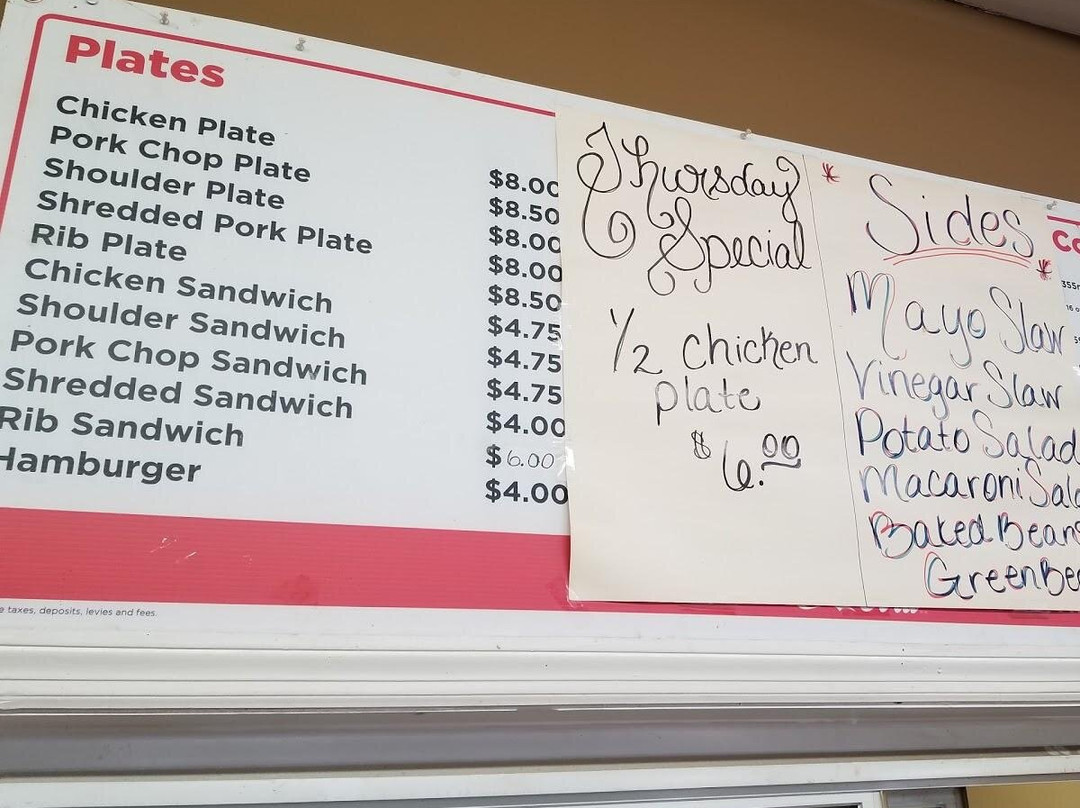 Plates
Chicken Plate $8.00
Pork Chop Plate $8.50
Shoulder Plate $8.00
Shredded Pork Plate $8.00
Rib Plate $8.50
Chicken Sandwich $4.75
Shoulder Sandwich $4.75
Pork Chop Sandwich $4.75
Shredded Sandwich $4.00
Rib Sandwich $6.00
Hamburger $4.00
taxes, deposits, levies and fees.
Thursday
Special
1/2 chicken
plate
$6.00
* Sides *
Mayo Slaw
Vinegar Slaw
Potato Salad
Macaroni Sala
Baked Beans
Green Be